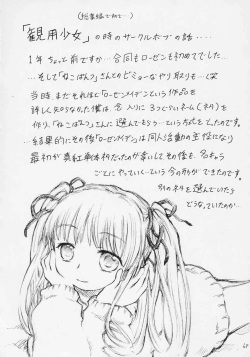 (総集編であとで…)
「観用少女」の時のサークルポプの話....
1年ちょっと前ですか…今回もローゼンもわめてでした…
…そして「ねこぱんつ」さんとのビミョーなやり取りも…(笑
当時、まだそれほど「ローゼンメイデン」という作品を
詳しく知らなかった僕は 念入りに3つぐらいネーム(ネタ)を
作り、「ねこぱんつ」さんに選んでもらう…という方式をとたのです。
…結果的にその後「ローゼンメイデン」は同人活動の主軸になり
最初が真紅本だったのが幸いしてその後も、名から
ごとにやっていく…という今の形ができてきました。
別のネタを選んでいたら
どうなっていたのか…